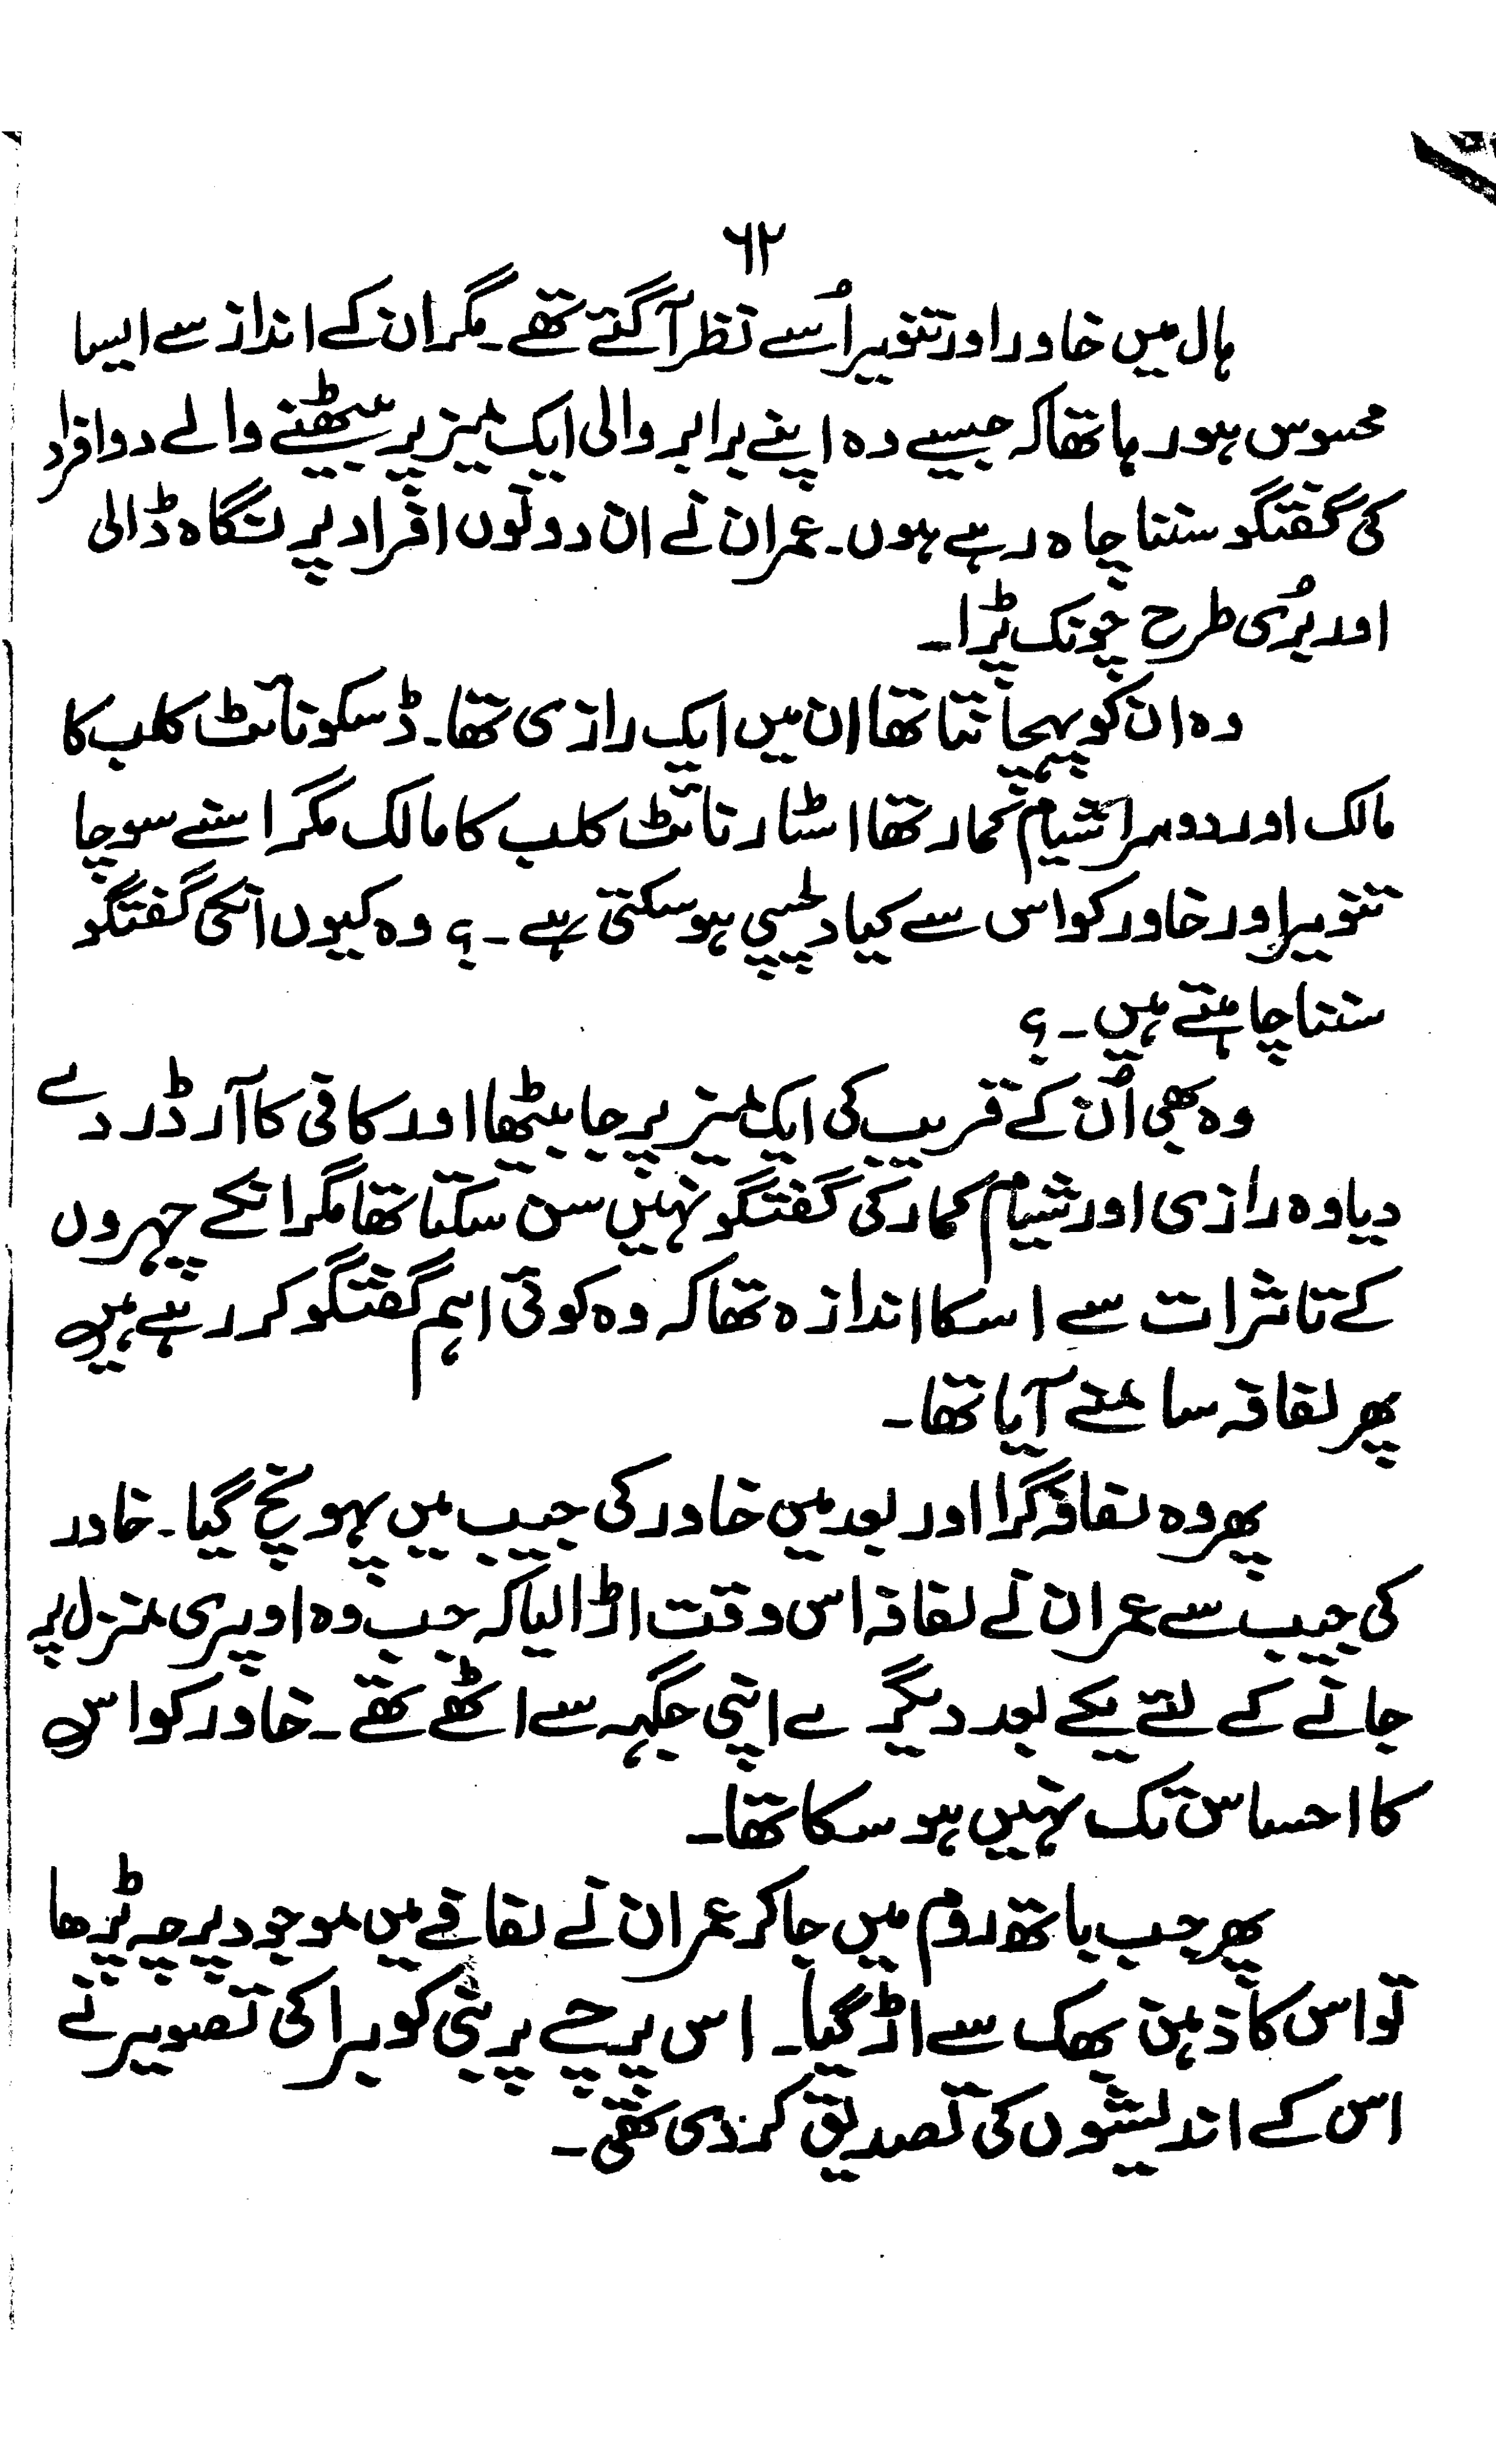 ۶۲
ہال میں خاور اور تنویر اُسے نظر آ گئے تھے۔ مگر ان کے انداز سے ایسا
محسوس ہو رہا تھا کہ جیسے وہ اپنے برابر والی ایک میز پر بیٹھنے والے دو افراد
کی گفتگو سننا چاہ رہے ہوں۔ عمران نے ان دونوں افراد پر نگاہ ڈالی
اور بُری طرح چونک پڑا۔
وہ ان کو پہچانتا تھا ان میں ایک رازی تھا۔ ڈسکو نائٹ کلب کا
مالک اور دوسرا شیام کمار تھا اسٹار نائٹ کلب کا مالک مگر اسنے سوچا
تنویر اور خاور کو اس سے کیا دلچسپی ہو سکتی ہے۔؟ وہ کیوں انکی گفتگو
سننا چاہتے ہیں۔؟
وہ بھی اُن کے قریب کی ایک میز پر جا بیٹھا اور کافی کا آرڈر دے
دیا وہ رازی اور شیام کمار کی گفتگو نہیں سن سکتا تھا مگر انکے چہروں
کے تاثرات سے اسکا اندازہ تھا کہ وہ کوئی اہم گفتگو کر رہے ہیں
پھر لفافہ سامنے آیا تھا۔
پھر وہ لفافہ گرا اور بعد میں خاور کی جیب میں پہونچ گیا۔ خاور
کی جیب سے عمران نے لفافہ اس وقت اڑا لیا کہ جب وہ اوپری منزل پر
جانے کے لئے یکے بعد دیگرے اپنی جگہہ سے اٹھے تھے۔ خاور کو اس
کا احساس تک نہیں ہو سکا تھا۔
پھر جب باتھ روم میں جا کر عمران نے لفافے میں موجود پرچہ پڑھا
تو اس کا ذہن بھک سے اڑ گیا۔ اس پرچے پر بنی کوبرا کی تصویر نے
اس کے اندیشوں کی تصدیق کر دی تھی۔